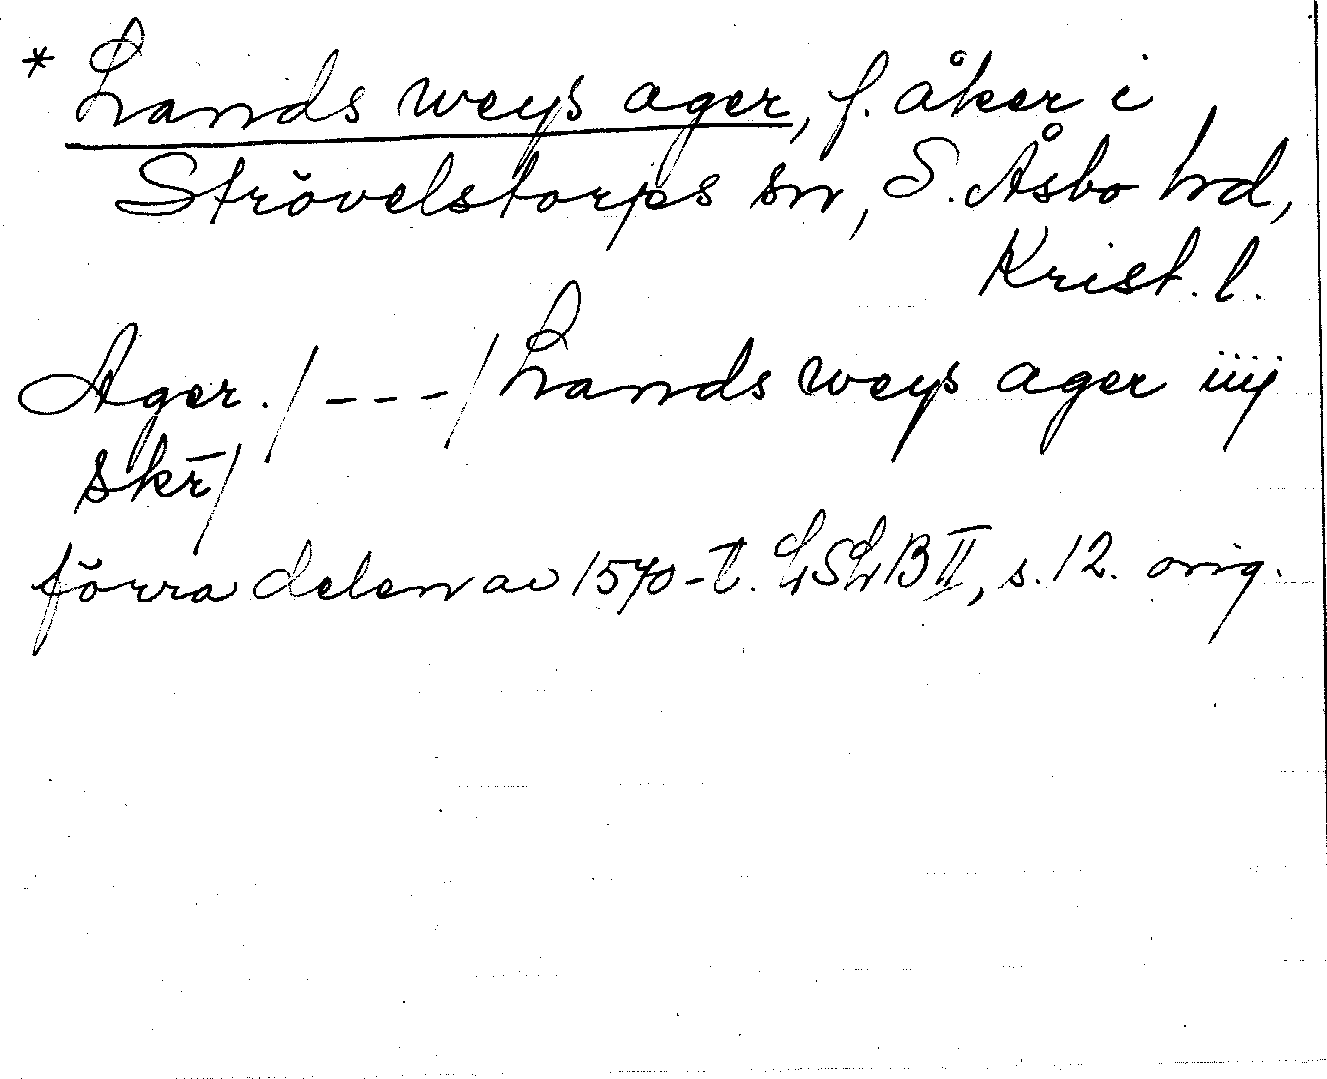 * Lands weys ager, f. åker i
Strövelstorps sn, S. Åsbo hd,
Krist. l.
Ager. / - - - / Lands weys ager iiij
skr̄ /
förra delen av 1570-t. LSLB II, s. 12. orig.